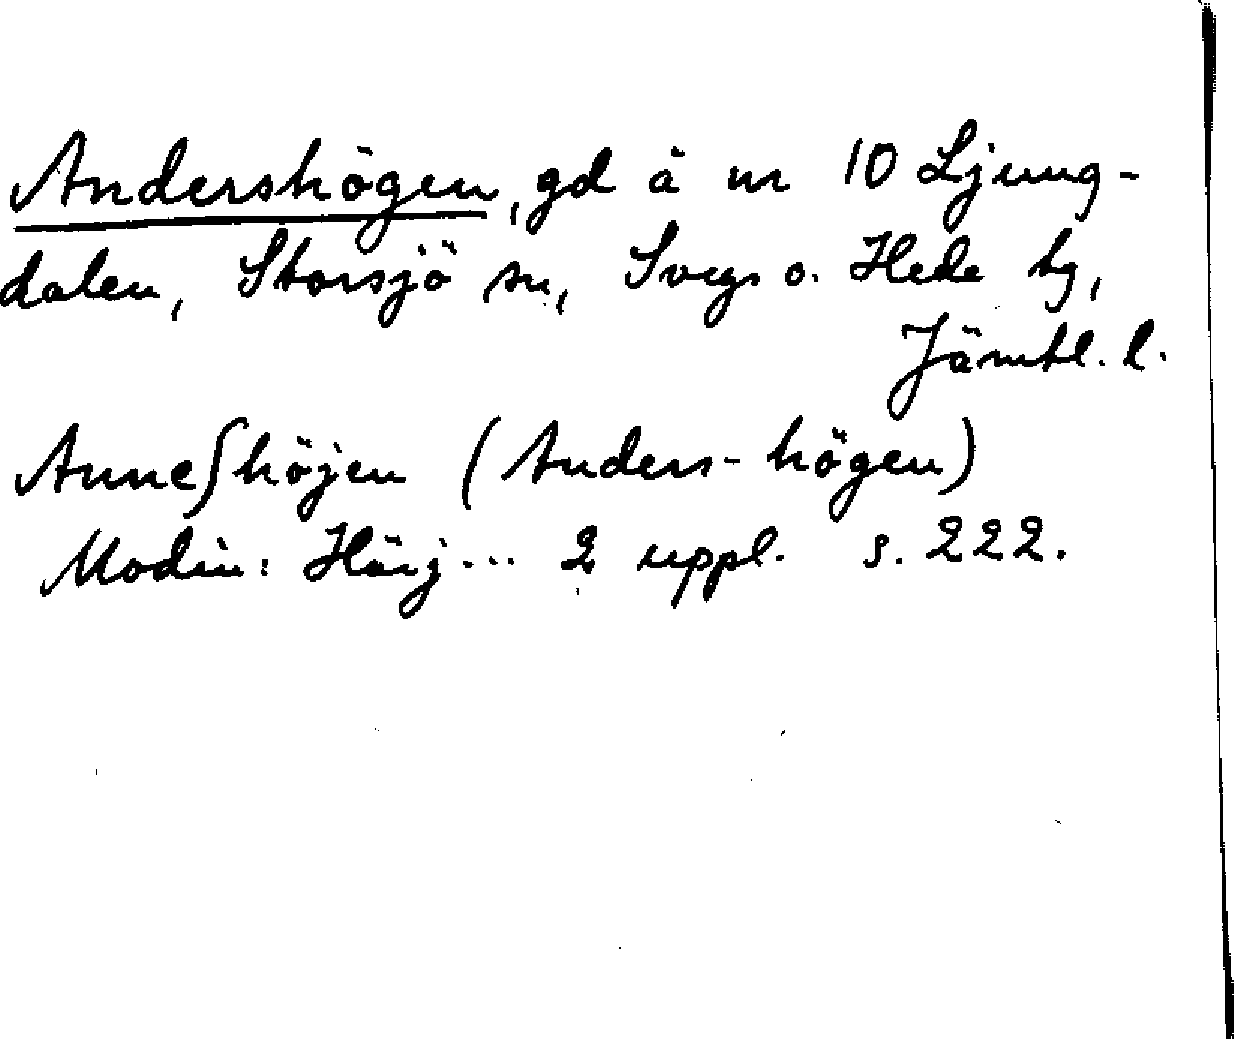 Andershögen, gd å nr 10 Ljung-
dalen, Storsjö sn, Svegs o. Hede tg,
Jämtl. l.
Anneʃhöjen (Anders-högen)
Modin: Härj... 2 uppl. s. 222.